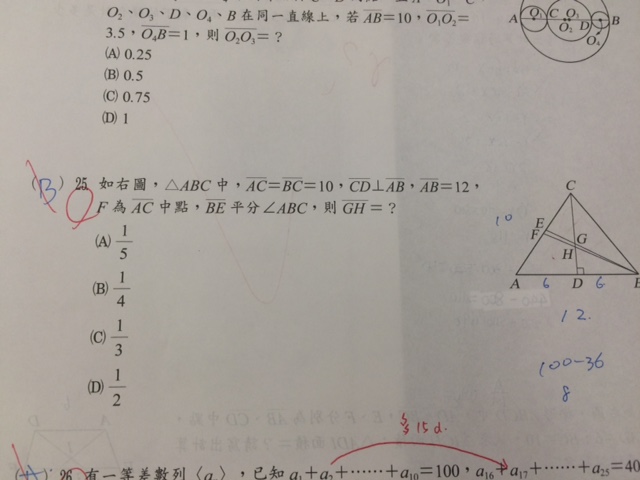 O₂、O₃、D、O₄、B 在同一直線上，若 AB=10，O₁O₂=
3.5，O₄B=1，則 O₂O₃=？
(A) 0.25
(B) 0.5
(C) 0.75
(D) 1
A O₁ C O₃ O₂ D B
O₄
(B) 25 如右圖，△ABC 中，AC=BC=10，CD⊥AB，AB=12，
F 為 AC 中點，BE 平分∠ABC，則 GH=？
(A) 1/5
(B) 1/4
(C) 1/3
(D) 1/2
C
10 E
F G
H
A 6 D 6 B
12.
100-36
8
15d.
(A) 26 有一等差數列〈aₙ〉，已知 a₁+a₂+……+a₁₀=100，a₁₆+a₁₇+……+a₂₅=40